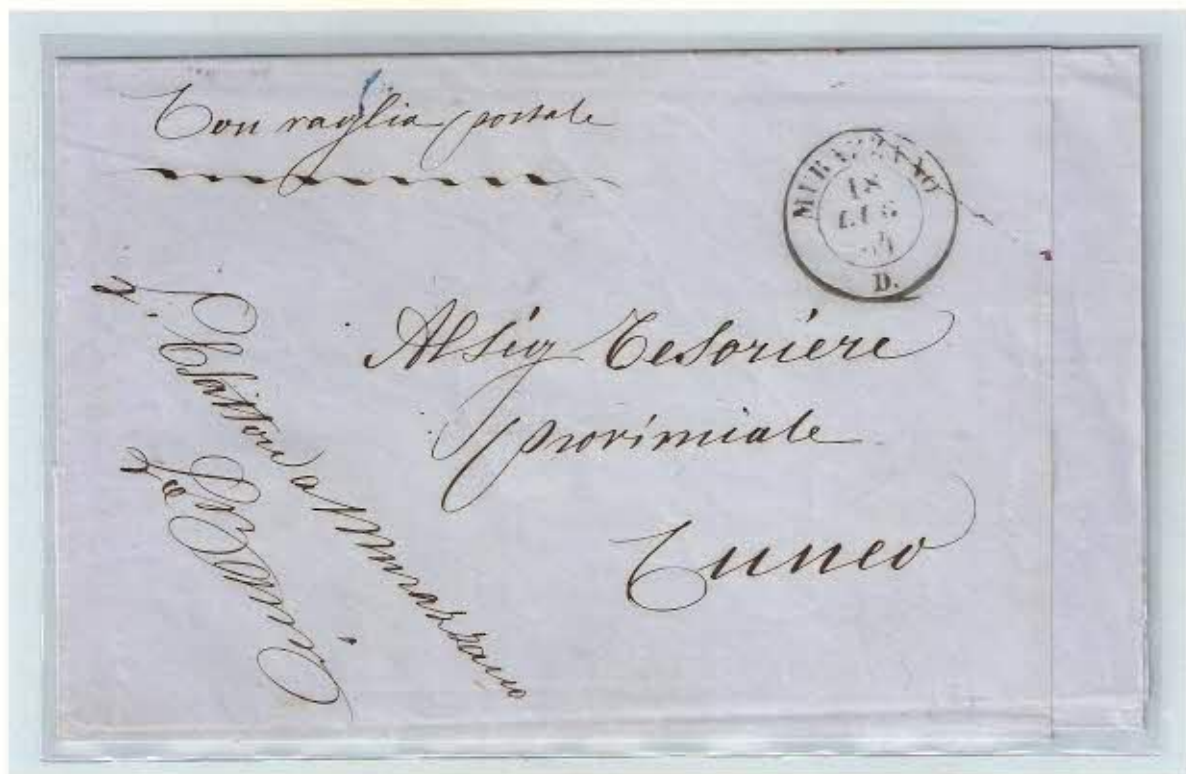 Con vaglia postale
MURAZZANO
18
LUG
D.
Al Sig Tesoriere
provinciale
Cuneo
a Murazzano